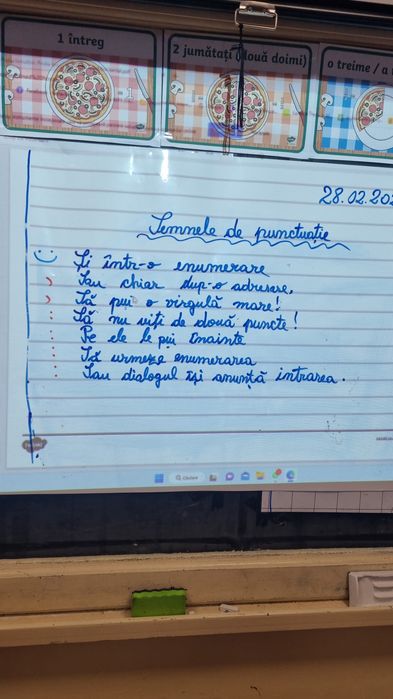 1 întreg
2 jumătăți (două doimi)
o treime / a
28.02.202
Semnele de punctuație
Și într-o enumerare
Sau chiar dup-o adresare,
Să pui o virgulă mare!
Să nu uiți de două puncte!
Pe ele le pui înainte
Să urmeze enumerarea
Sau dialogul își anunță intrarea.
Căutare